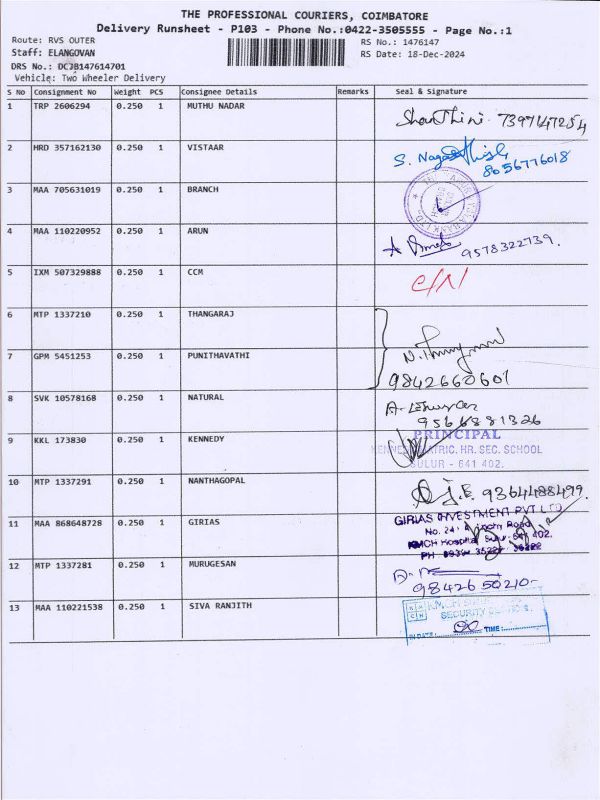 THE PROFESSIONAL COURIERS, COIMBATORE
Delivery Runsheet - P103 - Phone No.:0422-3505555 - Page No.:1
Route: RVS OUTER
RS No.: 1476147
Staff: ELANGOVAN
RS Date: 18-Dec-2024
DRS No.: DCJB147614701
Vehicle: Two Wheeler Delivery
S No Consignment No Weight PCS Consignee Details Remarks Seal & Signature
1 TRP 2606294 0.250 1 MUTHU NADAR
7397147254
2 HRD 357162130 0.250 1 VISTAAR
S.
8056776018
3 MAA 705631019 0.250 1 BRANCH
4 MAA 110220952 0.250 1 ARUN
9578322739.
5 IXM 507329888 0.250 1 CCM
6 MTP 1337210 0.250 1 THANGARAJ
7 GPM 5451253 0.250 1 PUNITHAVATHI
9842660601
8 SVK 10578168 0.250 1 NATURAL
9566881326
9 KKL 173830 0.250 1 KENNEDY
PRINCIPAL
MATRIC. HR. SEC. SCHOOL
SULUR - 641 402.
10 MTP 1337291 0.250 1 NANTHAGOPAL
9364488499.
11 MAA 868648728 0.250 1 GIRIAS
GIRIAS INVESTMENT PVT LTD
Road
KMCH Hospital 402.
12 MTP 1337281 0.250 1 MURUGESAN
9842650210-
13 MAA 110221538 0.250 1 SIVA RANJITH
KMCH
SECURITY
IN DATE: TIME: